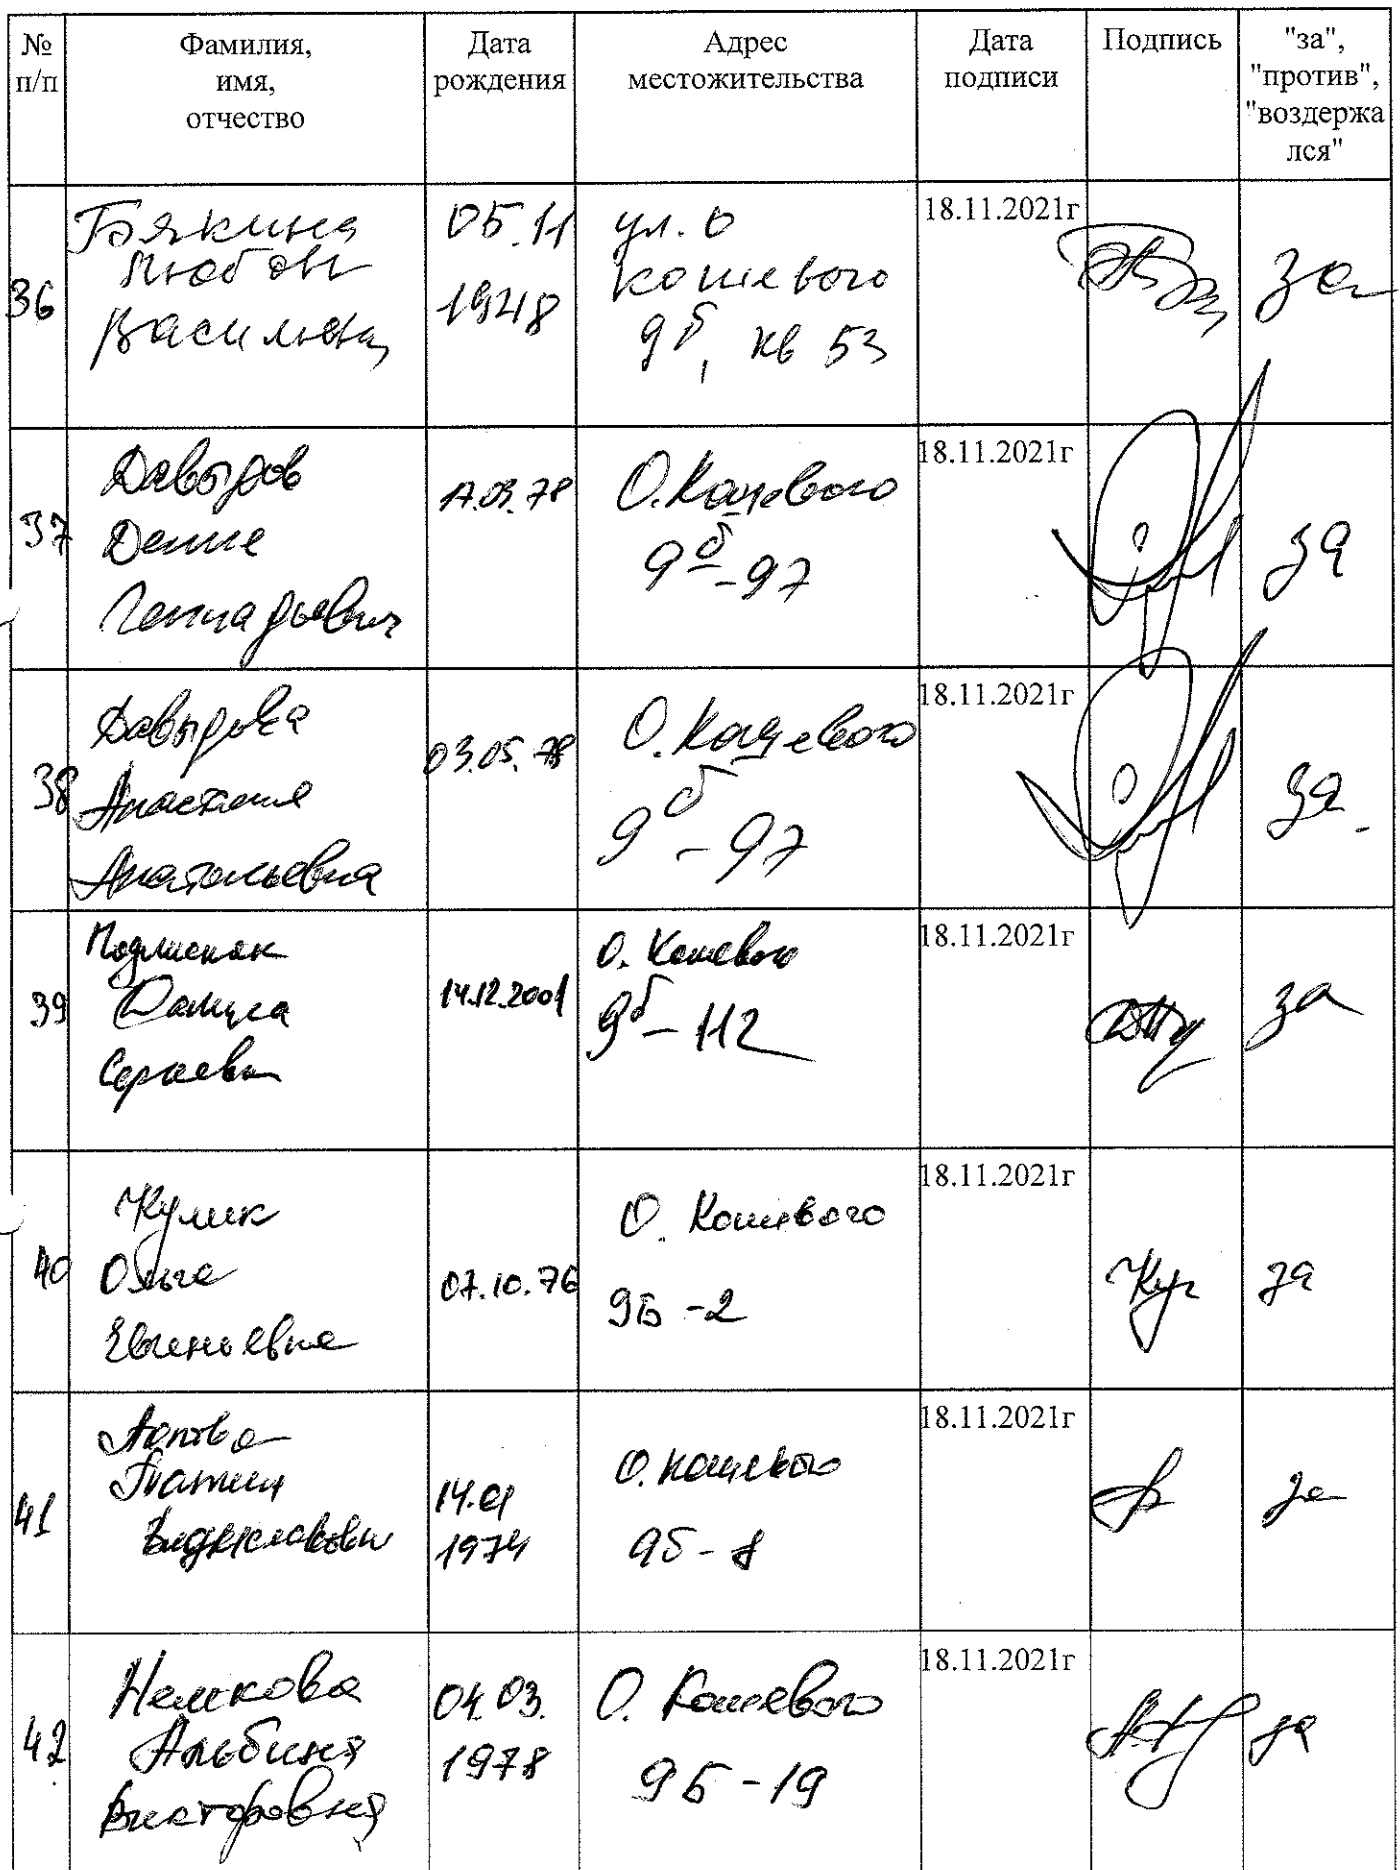 № п/п
Фамилия, имя, отчество
Дата рождения
Адрес местожительства
Дата подписи
Подпись
"за", "против", "воздержался"
36
Бякина
Любовь
05.11
1948
ул. О
Кошевого
9б, кв 53
18.11.2021г
за
37
Давыдов
Денис
Геннадьевич
17.03.78
О. Кошевого
9б-97
18.11.2021г
за
38
Давыдова
Анастасия
Анатольевна
03.05.78
О. Кошевого
9б-97
18.11.2021г
за
39
14.12.2001
О. Кошевого
9б-112
18.11.2021г
за
40
Кулик
Ольга
Евгеньевна
07.10.76
О. Кошевого
9Б-2
18.11.2021г
за
41
14.01
1974
О. Кошевого
9Б-8
18.11.2021г
за
42
Немкова
Альбина
Викторовна
04.03.
1978
О. Кошевого
9Б-19
18.11.2021г
за